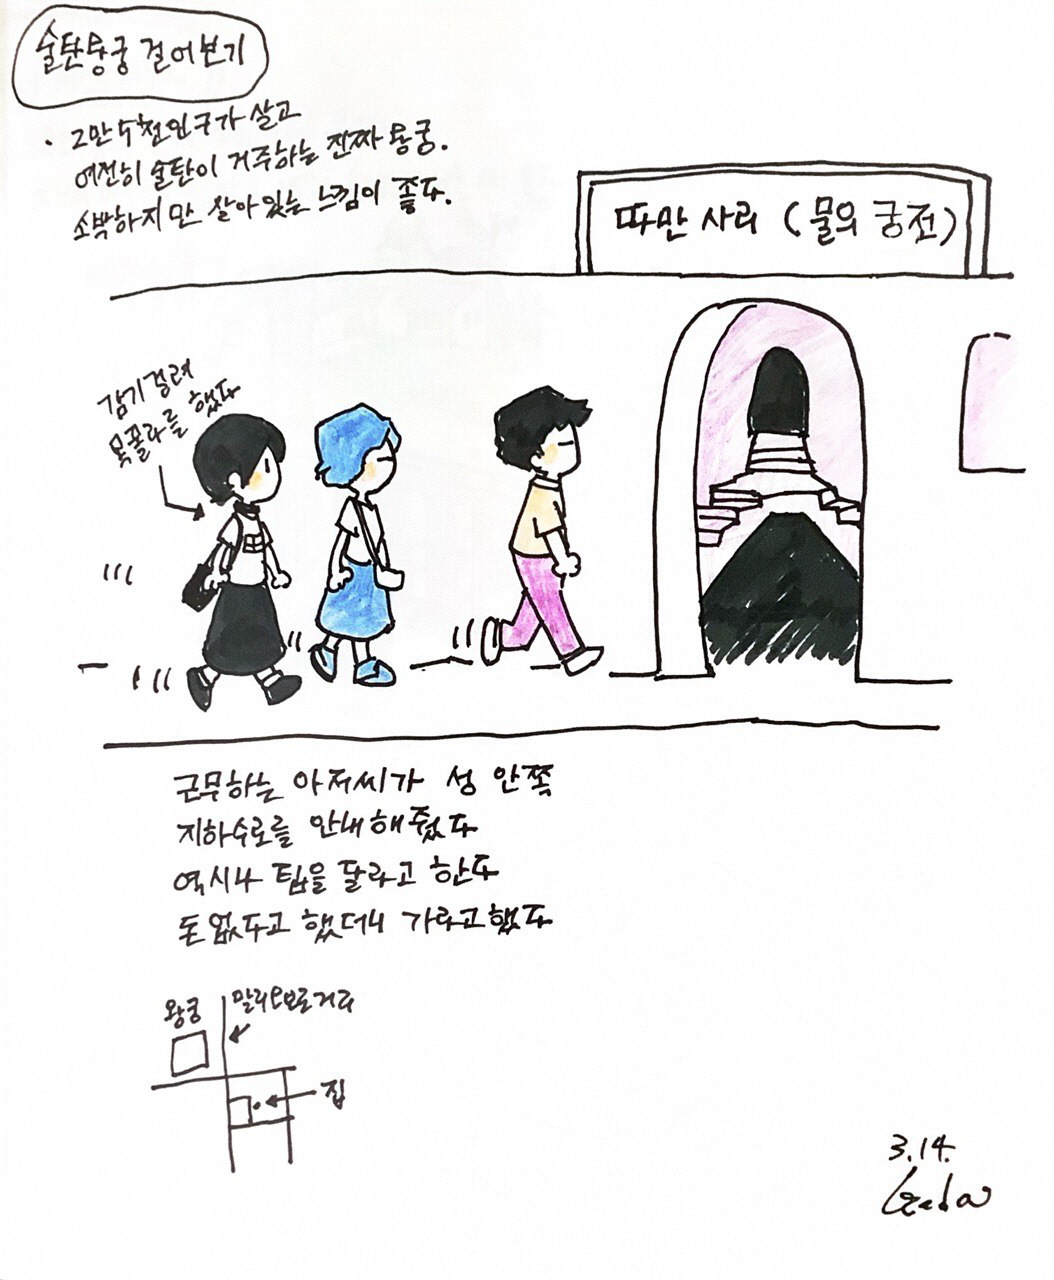 술탄왕궁 걸어보기
· 2만5천인구가 살고
여전히 술탄이 거주하는 진짜 왕궁.
소박하지만 살아있는 느낌이 좋다.
따만 사리 (물의 궁전)
감기걸려
목폴라를 했다
근무하는 아저씨가 성 안쪽
지하수로를 안내해줬다
역시나 팁을 달라고 한다
돈없다고 했더니 가라고했다
왕궁
말리오보로거리
집
3.14.